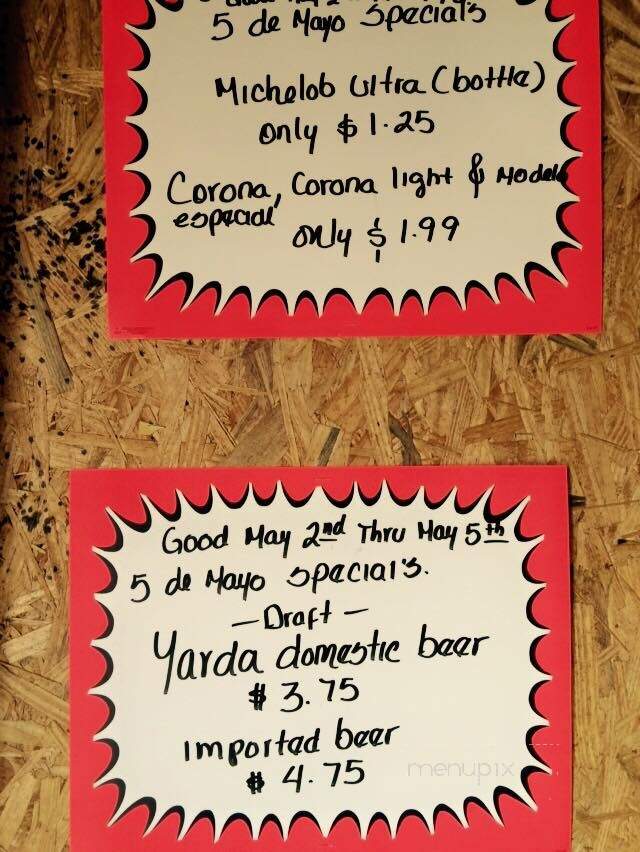 5 de Mayo Special's
Michelob Ultra (bottle)
only $ 1.25
Corona, Corona light & Modelo
especial
only $ 1.99
Good May 2nd Thru May 5th
5 de Mayo special's.
- Draft -
Yarda domestic beer
$ 3.75
imported beer
$ 4.75
menupix